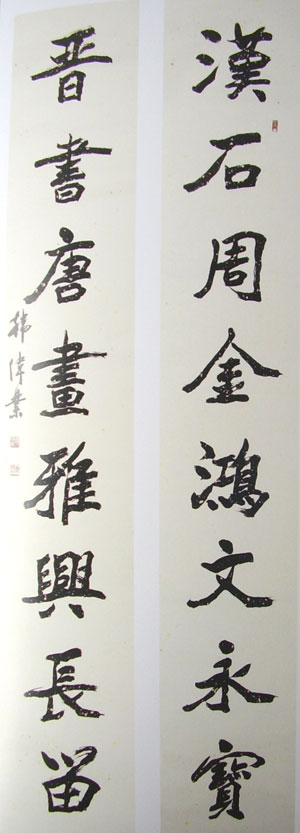 漢石周金鴻文永寶
晋書唐畫雅興長留
韩偉業